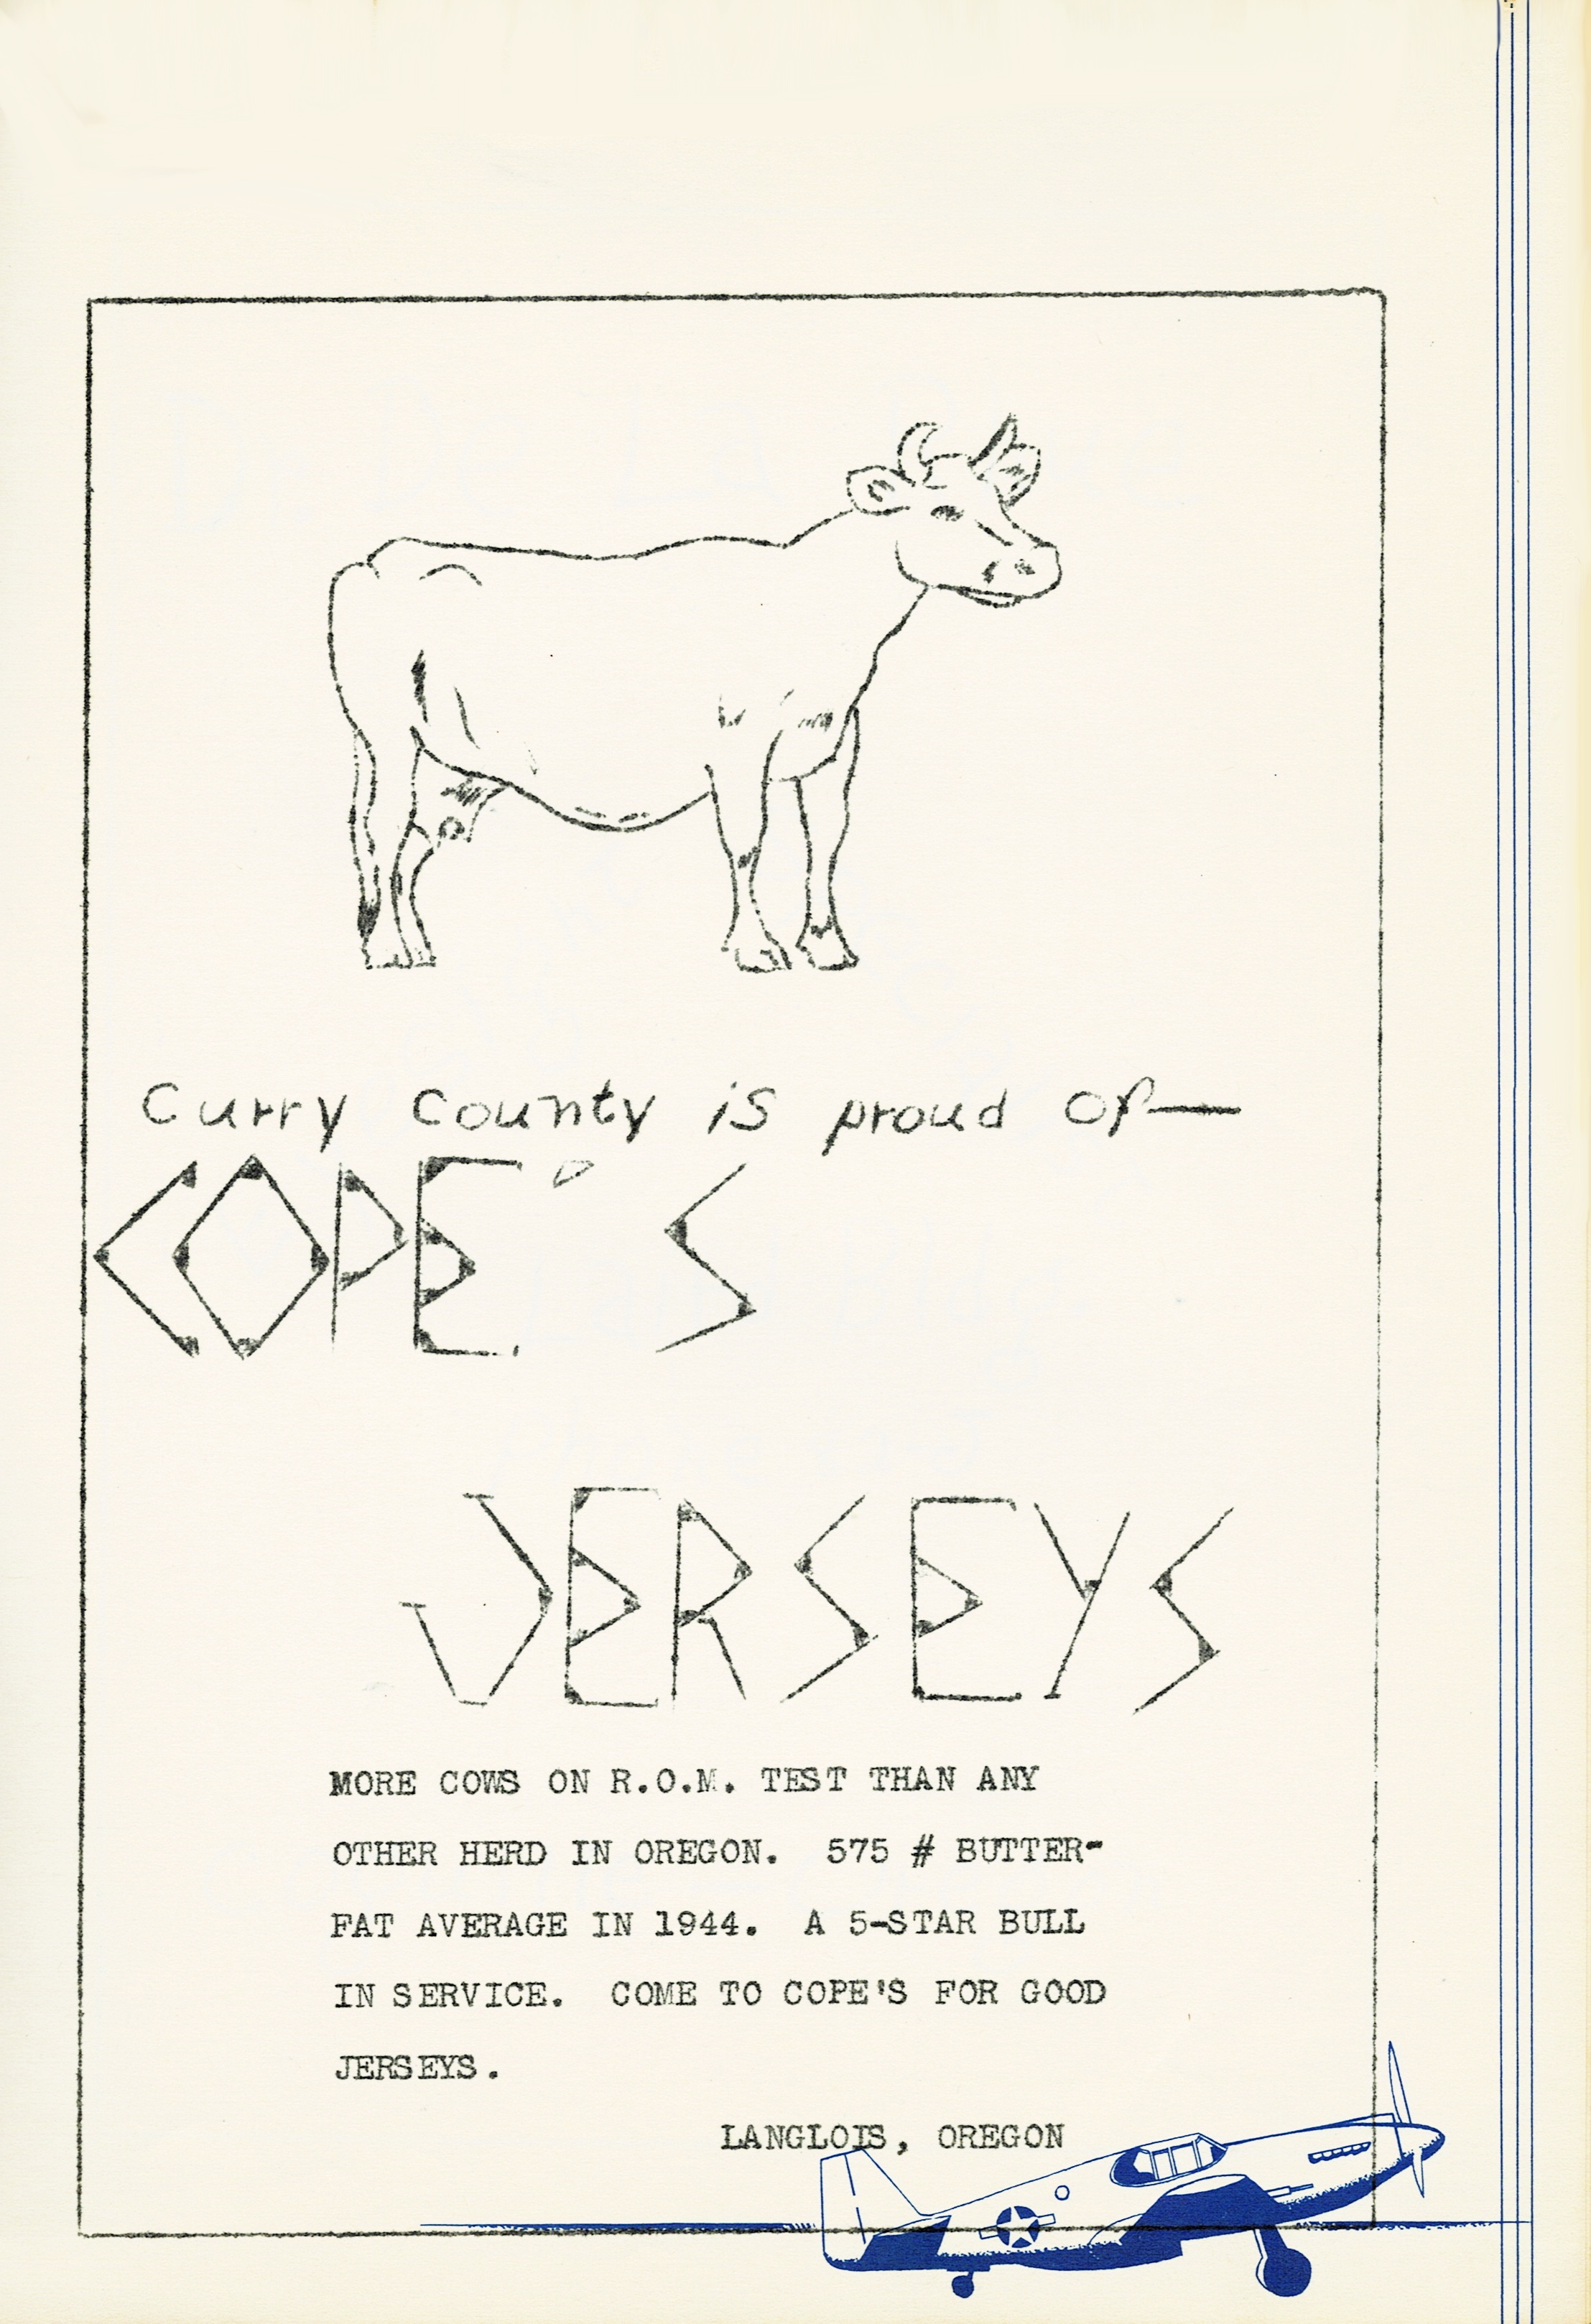 Curry County is proud of—
COPE'S
JERSEYS
MORE COWS ON R.O.M. TEST THAN ANY
OTHER HERD IN OREGON. 575 # BUTTER-
FAT AVERAGE IN 1944. A 5-STAR BULL
IN SERVICE. COME TO COPE'S FOR GOOD
JERSEYS.
LANGLOIS, OREGON